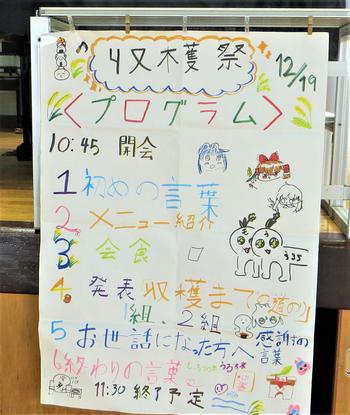 収穫祭
12/19
<プログラム>
10:45 開会
1 初めの言葉
2 メニュー紹介
3 会食
4 発表 収穫までの道のり
1組、2組
5 お世話になった方へ 感謝の言葉
6 終わりの言葉
11:30 終了予定